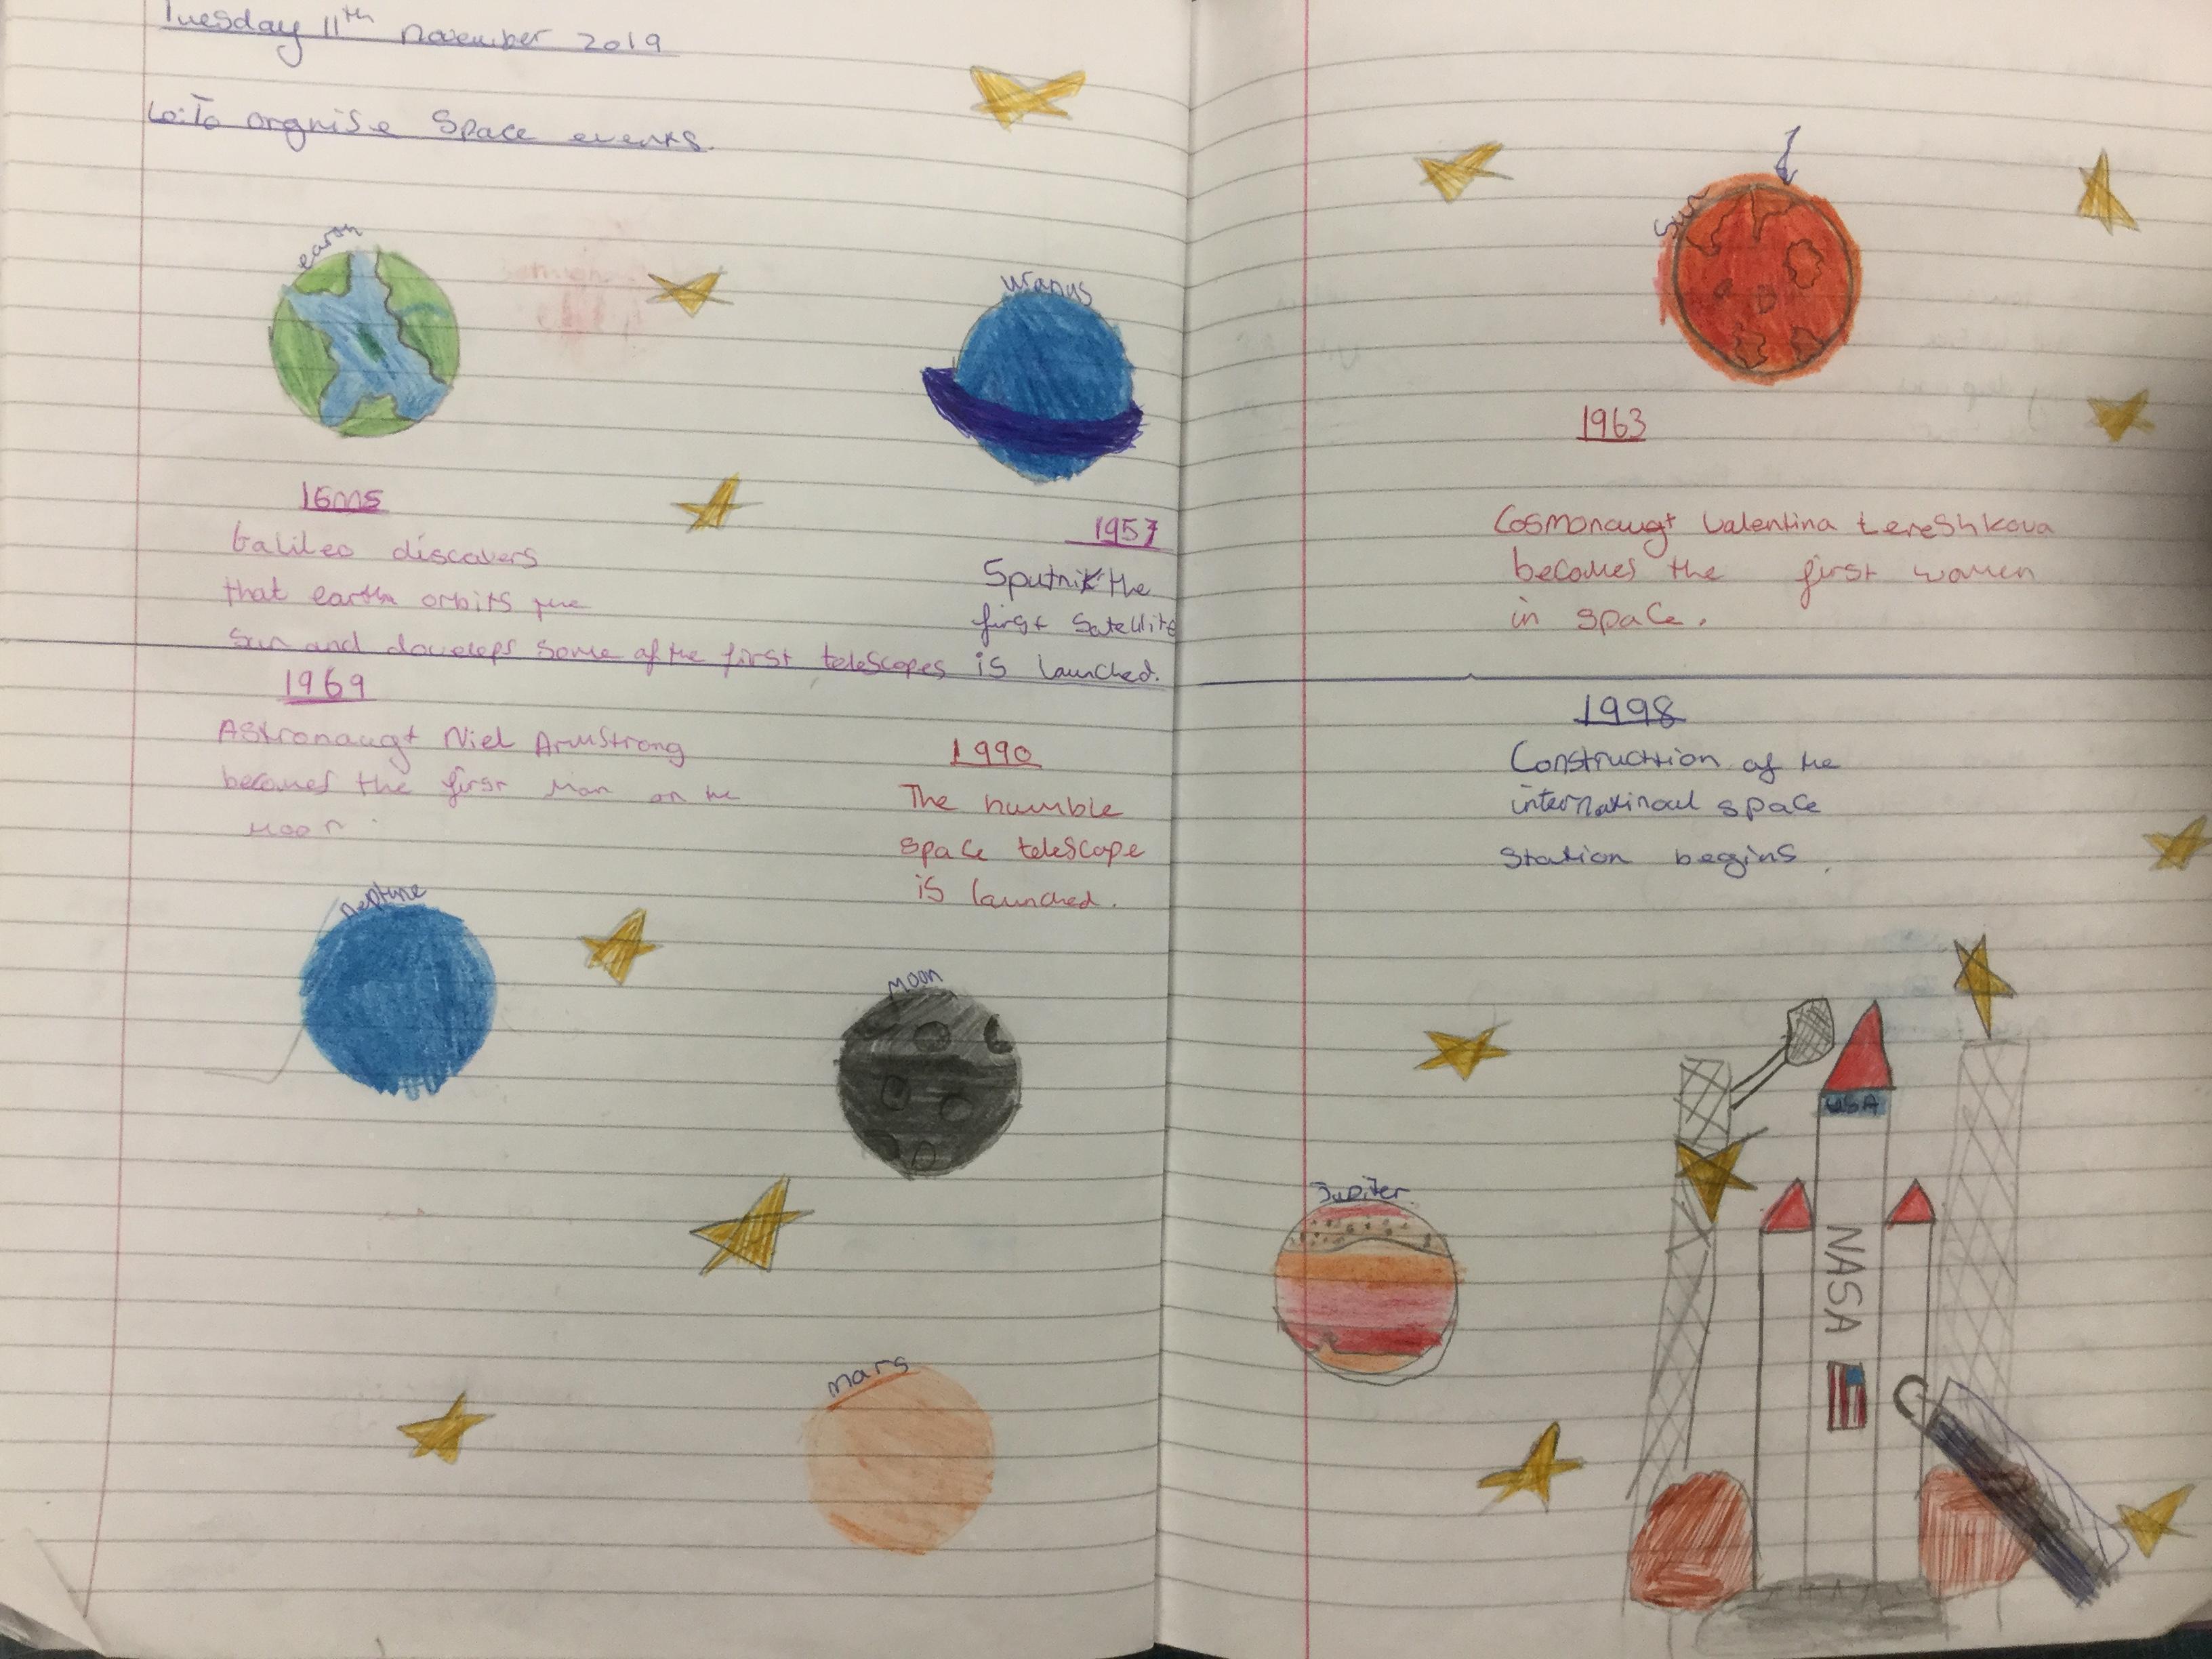 Tuesday 11th november 2019
Lo: To orgnise Space events.
earth
uranus
1600s
Galileo discovers
that earth orbits the
Sun and doveleps some of the first telescopes
1957
Sputnik the
first Satellite
is launched.
Sun
1963
Cosmonaugt Valentina tereshkova
becomes the first women
in space.
1969
Astronaugt Niel Armstrong
becomes the first man on the
moon.
1990
The humble
space telescope
is launched.
1998
Construcition of the
internatinoal space
station begins.
neptune
moon
mars
Jupiter
USA
NASA